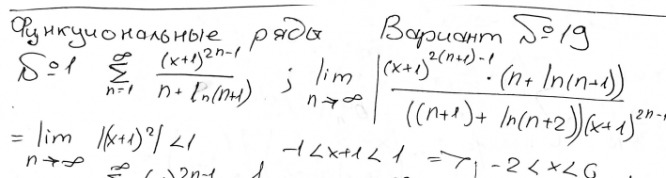 Функциональные ряды Вариант №19
№1 ∑_{n=1}^{∞} (x+1)^{2n-1} / (n + ln(n+1)) ; lim_{n→∞} |(x+1)^{2(n+1)-1} · (n + ln(n+1)) / ((n+1) + ln(n+2))(x+1)^{2n-1}
= lim_{n→∞} |(x+1)^2| < 1 -1 < x+1 < 1 => -2 < x < 0